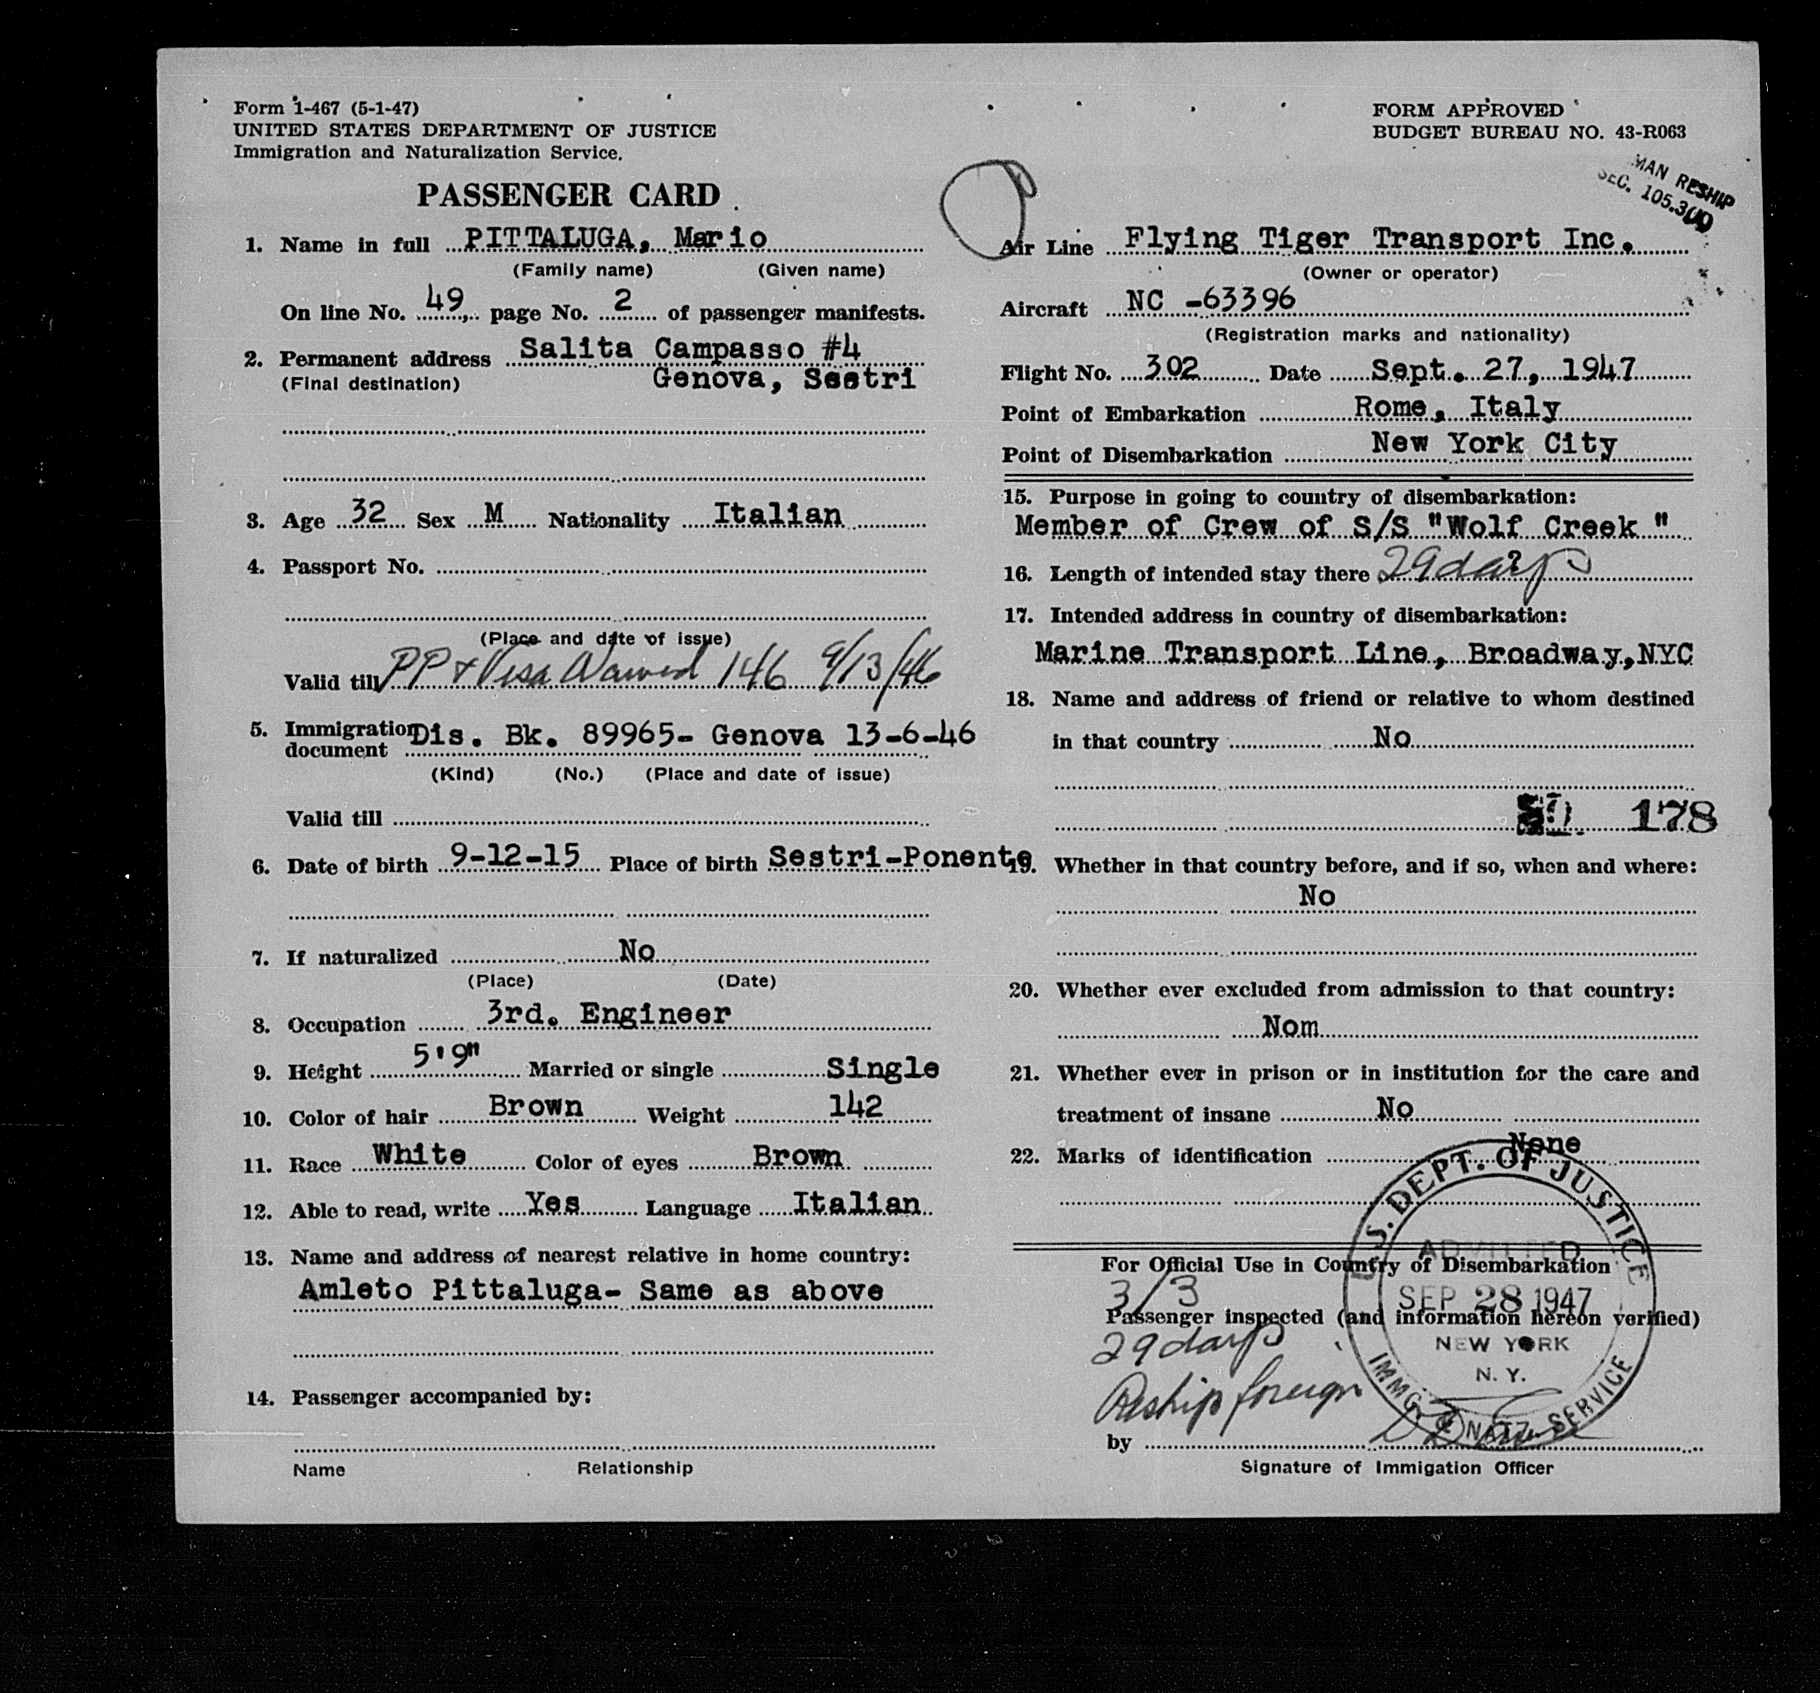 Form 1-467 (5-1-47)
UNITED STATES DEPARTMENT OF JUSTICE
Immigration and Naturalization Service.
FORM APPROVED
BUDGET BUREAU NO. 43-R063
MAN RESHIP
SEC. 105.3
PASSENGER CARD
1. Name in full PITTALUGA, Mario
(Family name) (Given name)
On line No. 49, page No. 2 of passenger manifests.
2. Permanent address Salita Campasso #4
(Final destination) Genova, Sestri
3. Age 32 Sex M Nationality Italian
4. Passport No.
(Place and date of issue)
Valid till PP & Visa Waived 146 9/13/46
5. Immigration document Dis. Bk. 89965- Genova 13-6-46
(Kind) (No.) (Place and date of issue)
Valid till
6. Date of birth 9-12-15 Place of birth Sestri-Ponente
7. If naturalized No
(Place) (Date)
8. Occupation 3rd. Engineer
9. Height 5'9" Married or single Single
10. Color of hair Brown Weight 142
11. Race White Color of eyes Brown
12. Able to read, write Yes Language Italian
13. Name and address of nearest relative in home country:
Amleto Pittaluga- Same as above
14. Passenger accompanied by:
Name Relationship
Air Line Flying Tiger Transport Inc.
(Owner or operator)
Aircraft NC -63396
(Registration marks and nationality)
Flight No. 302 Date Sept. 27, 1947
Point of Embarkation Rome, Italy
Point of Disembarkation New York City
15. Purpose in going to country of disembarkation:
Member of Crew of S/S "Wolf Creek "
16. Length of intended stay there 29 days
17. Intended address in country of disembarkation:
Marine Transport Line, Broadway,NYC
18. Name and address of friend or relative to whom destined
in that country No
178
19. Whether in that country before, and if so, when and where:
No
20. Whether ever excluded from admission to that country:
Nom
21. Whether ever in prison or in institution for the care and
treatment of insane No
22. Marks of identification None
For Official Use in Country of Disembarkation
3/3
Passenger inspected (and information hereon verified)
29 days
Reship foreign
by
Signature of Immigation Officer
U.S. DEPT. OF JUSTICE
ADMITTED
SEP 28 1947
NEW YORK
N. Y.
IMMG. & NATZ. SERVICE